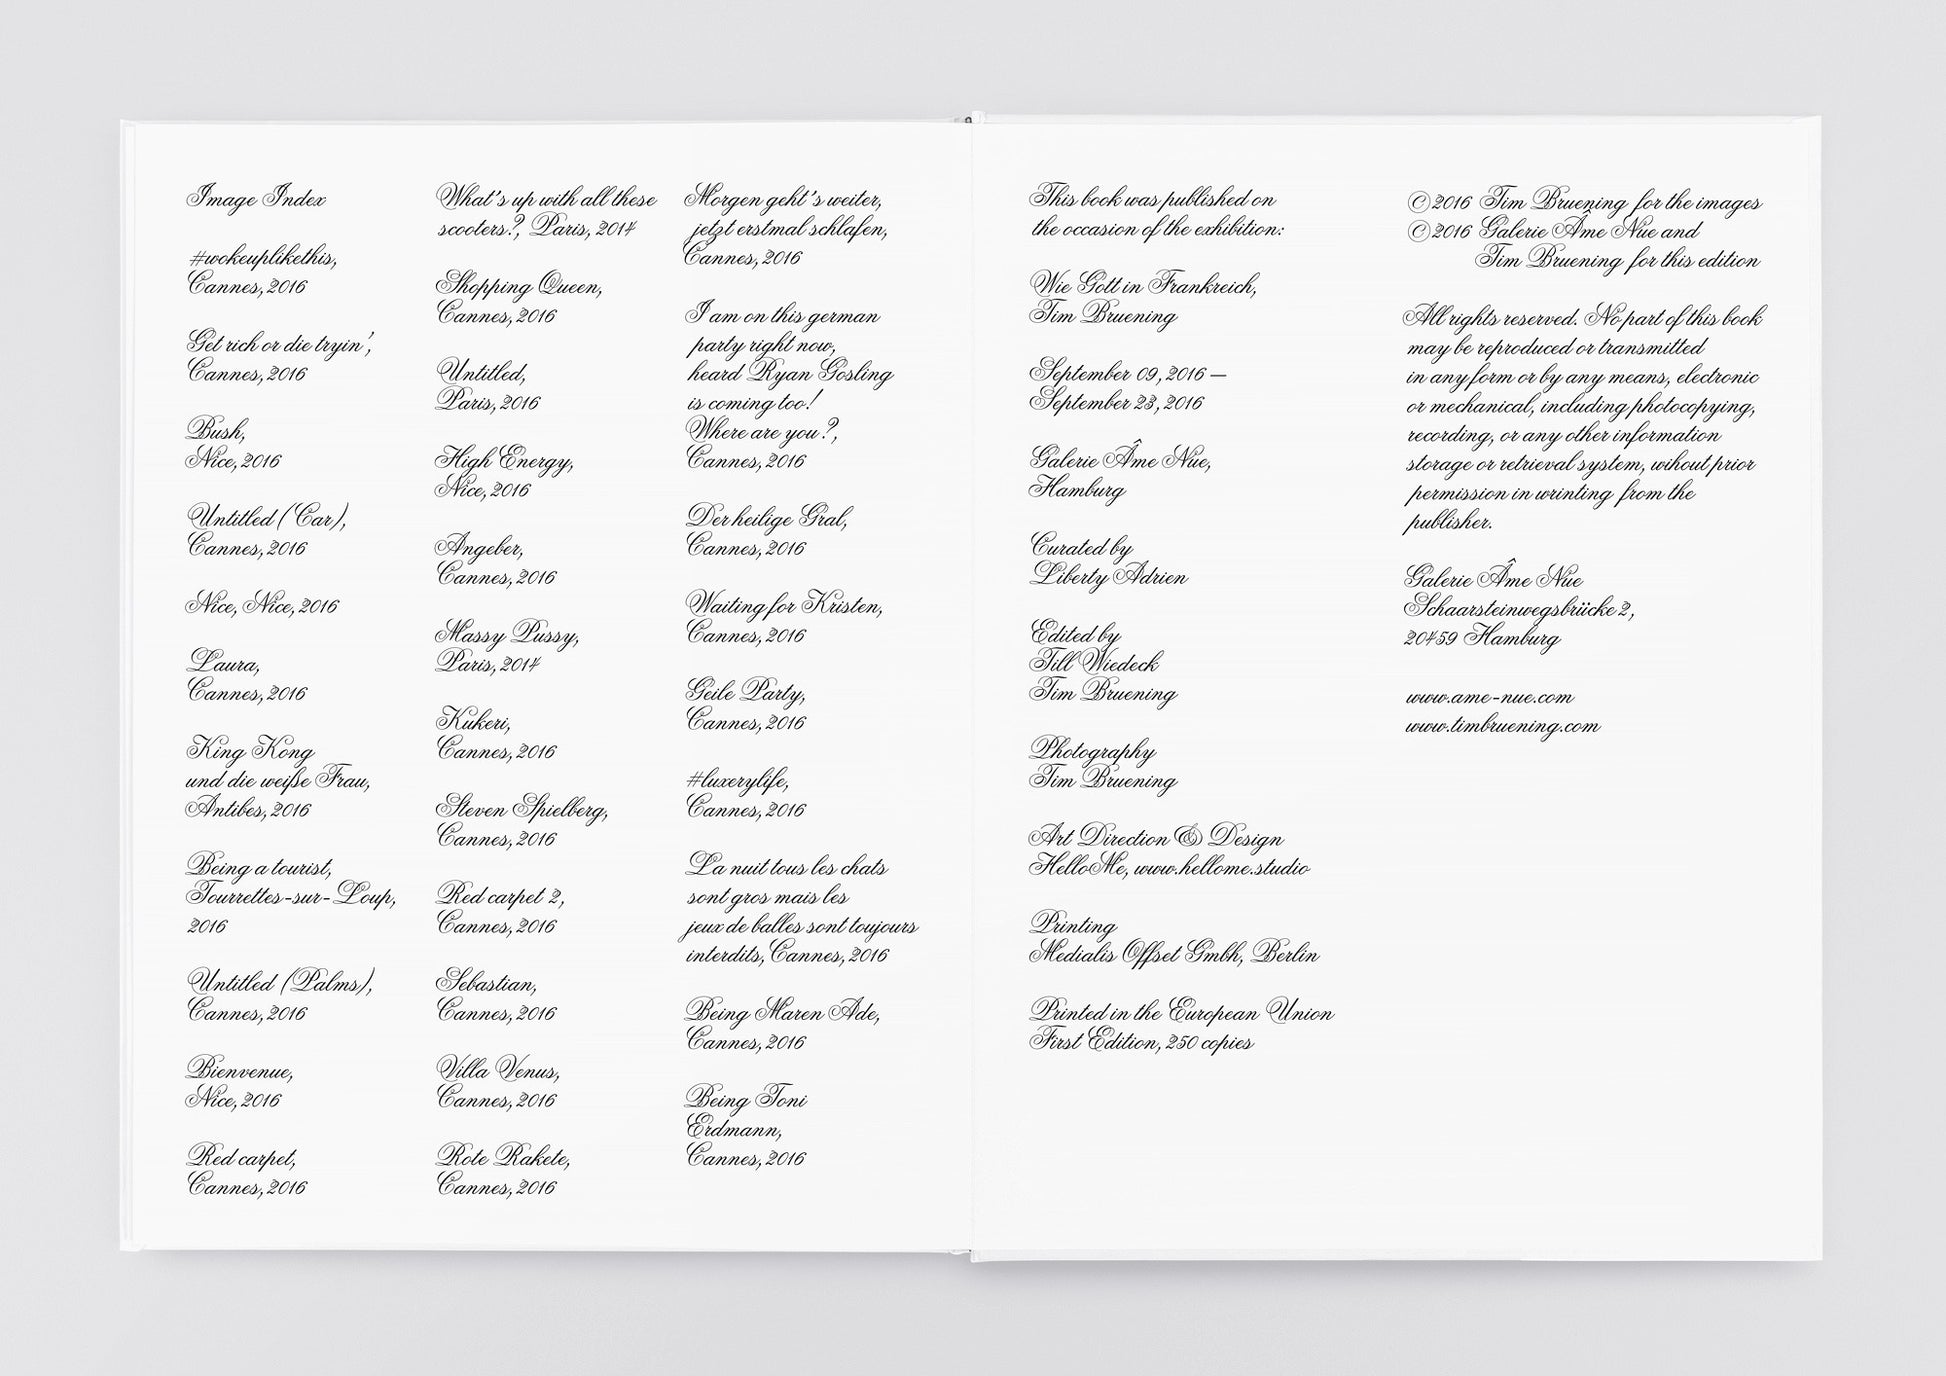 Image Index
#wokeuplikethis,
Cannes, 2016
Get rich or die tryin',
Cannes, 2016
Bush,
Nice, 2016
Untitled (Car),
Cannes, 2016
Nice, Nice, 2016
Laura,
Cannes, 2016
King Kong
und die weiße Frau,
Antibes, 2016
Being a tourist,
Tourrettes-sur-Loup,
2016
Untitled (Palms),
Cannes, 2016
Bienvenue,
Nice, 2016
Red carpet,
Cannes, 2016
What's up with all these
scooters?, Paris, 2014
Shopping Queen,
Cannes, 2016
Untitled,
Paris, 2016
High Energy,
Nice, 2016
Angeber,
Cannes, 2016
Massy Pussy,
Paris, 2014
Kukeri,
Cannes, 2016
Steven Spielberg,
Cannes, 2016
Red carpet 2,
Cannes, 2016
Sebastian,
Cannes, 2016
Villa Venus,
Cannes, 2016
Rote Rakete,
Cannes, 2016
Morgen geht's weiter,
jetzt erstmal schlafen,
Cannes, 2016
I am on this german
party right now,
heard Ryan Gosling
is coming too!
Where are you?,
Cannes, 2016
Der heilige Gral,
Cannes, 2016
Waiting for Kristen,
Cannes, 2016
Geile Party,
Cannes, 2016
#luxerylife,
Cannes, 2016
La nuit tous les chats
sont gros mais les
jeux de balles sont toujours
interdits, Cannes, 2016
Being Maren Ade,
Cannes, 2016
Being Toni
Erdmann,
Cannes, 2016
This book was published on
the occasion of the exhibition:
Wie Gott in Frankreich,
Tim Bruening
September 09, 2016 —
September 23, 2016
Galerie Âme Nue,
Hamburg
Curated by
Liberty Adrien
Edited by
Till Wiedeck
Tim Bruening
Photography
Tim Bruening
Art Direction & Design
HelloMe, www.hellome.studio
Printing
Medialis Offset Gmbh, Berlin
Printed in the European Union
First Edition, 250 copies
© 2016 Tim Bruening for the images
© 2016 Galerie Âme Nue and
Tim Bruening for this edition
All rights reserved. No part of this book
may be reproduced or transmitted
in any form or by any means, electronic
or mechanical, including photocopying,
recording, or any other information
storage or retrieval system, wihout prior
permission in wrinting from the
publisher.
Galerie Âme Nue
Schaarsteinwegsbrücke 2,
20459 Hamburg
www.ame-nue.com
www.timbruening.com